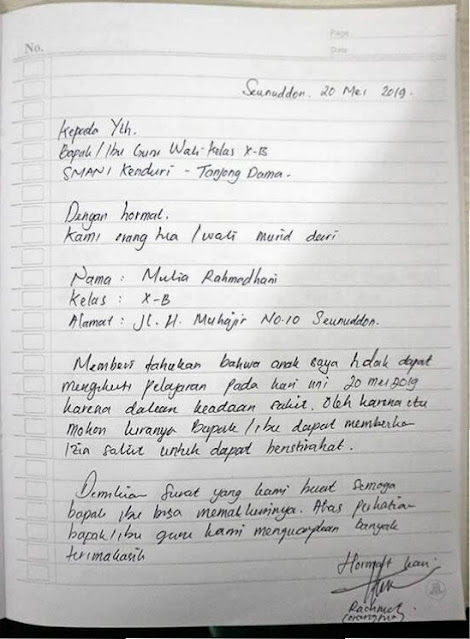 No.
Page
Date
Seunuddon, 20 Mei 2019.
Kepada Yth.
Bapak/Ibu Guru Wali-Kelas X-B
SMAN 1 Kenduri - Tanjong Dama.
Dengan hormat.
Kami orang tua/wali murid dari
Nama : Mulia Rahmadhani
Kelas : X-B
Alamat : Jl. H. Muhajir No.10 Seunuddon.
Memberi tahukan bahwa anak saya tidak dapat
mengikuti pelajaran pada hari ini 20 mei 2019
karena dalam keadaan sakit. Oleh karena itu
mohon kiranya Bapak/ibu dapat memberikan
Izin sakit untuk dapat beristirahat.
Demikian surat yang kami buat semoga
bapak ibu bisa memakluminya. Atas perhatian
bapak/ibu guru kami mengucapkan banyak
terimakasih
Hormat kami
Rachmat
(orang tua)